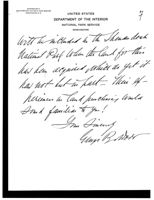 UNITED STATES
DEPARTMENT OF THE INTERIOR
NATIONAL PARK SERVICE
WASHINGTON
will be included in the Shenandoah
National Park when the land for this
has been acquired, which as yet it
has not but in part. Their
experiences in land purchasing would
sound familiar to you!
Yours Sincerely
George B.